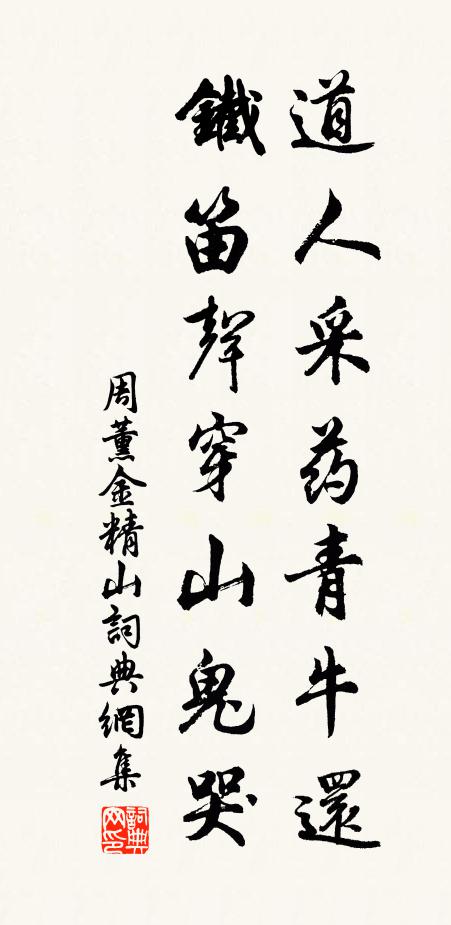 道人采药青牛還
鐵笛聲穿山鬼哭
周薰金精山詞典網集
詞典网印